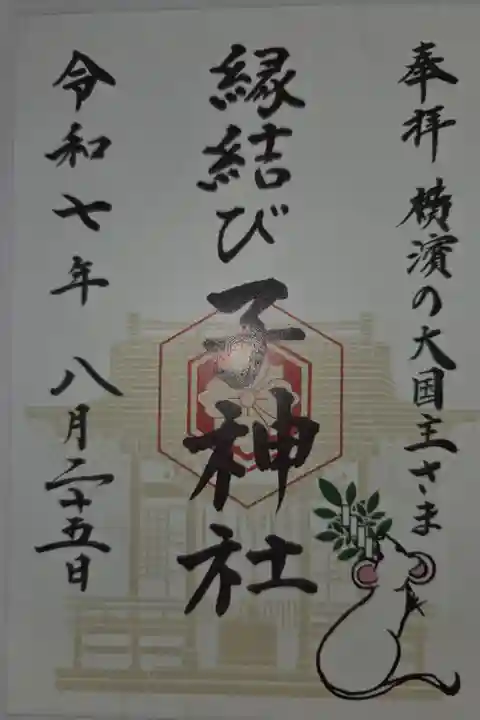 奉拝 横濱の大国主さま
縁結び子神社
令和七年 八月二十五日